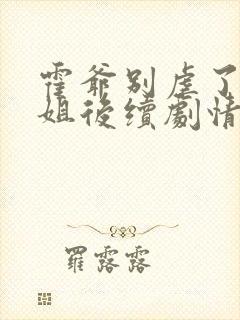 霍爺別虐了
姐後續劇情
羅露露